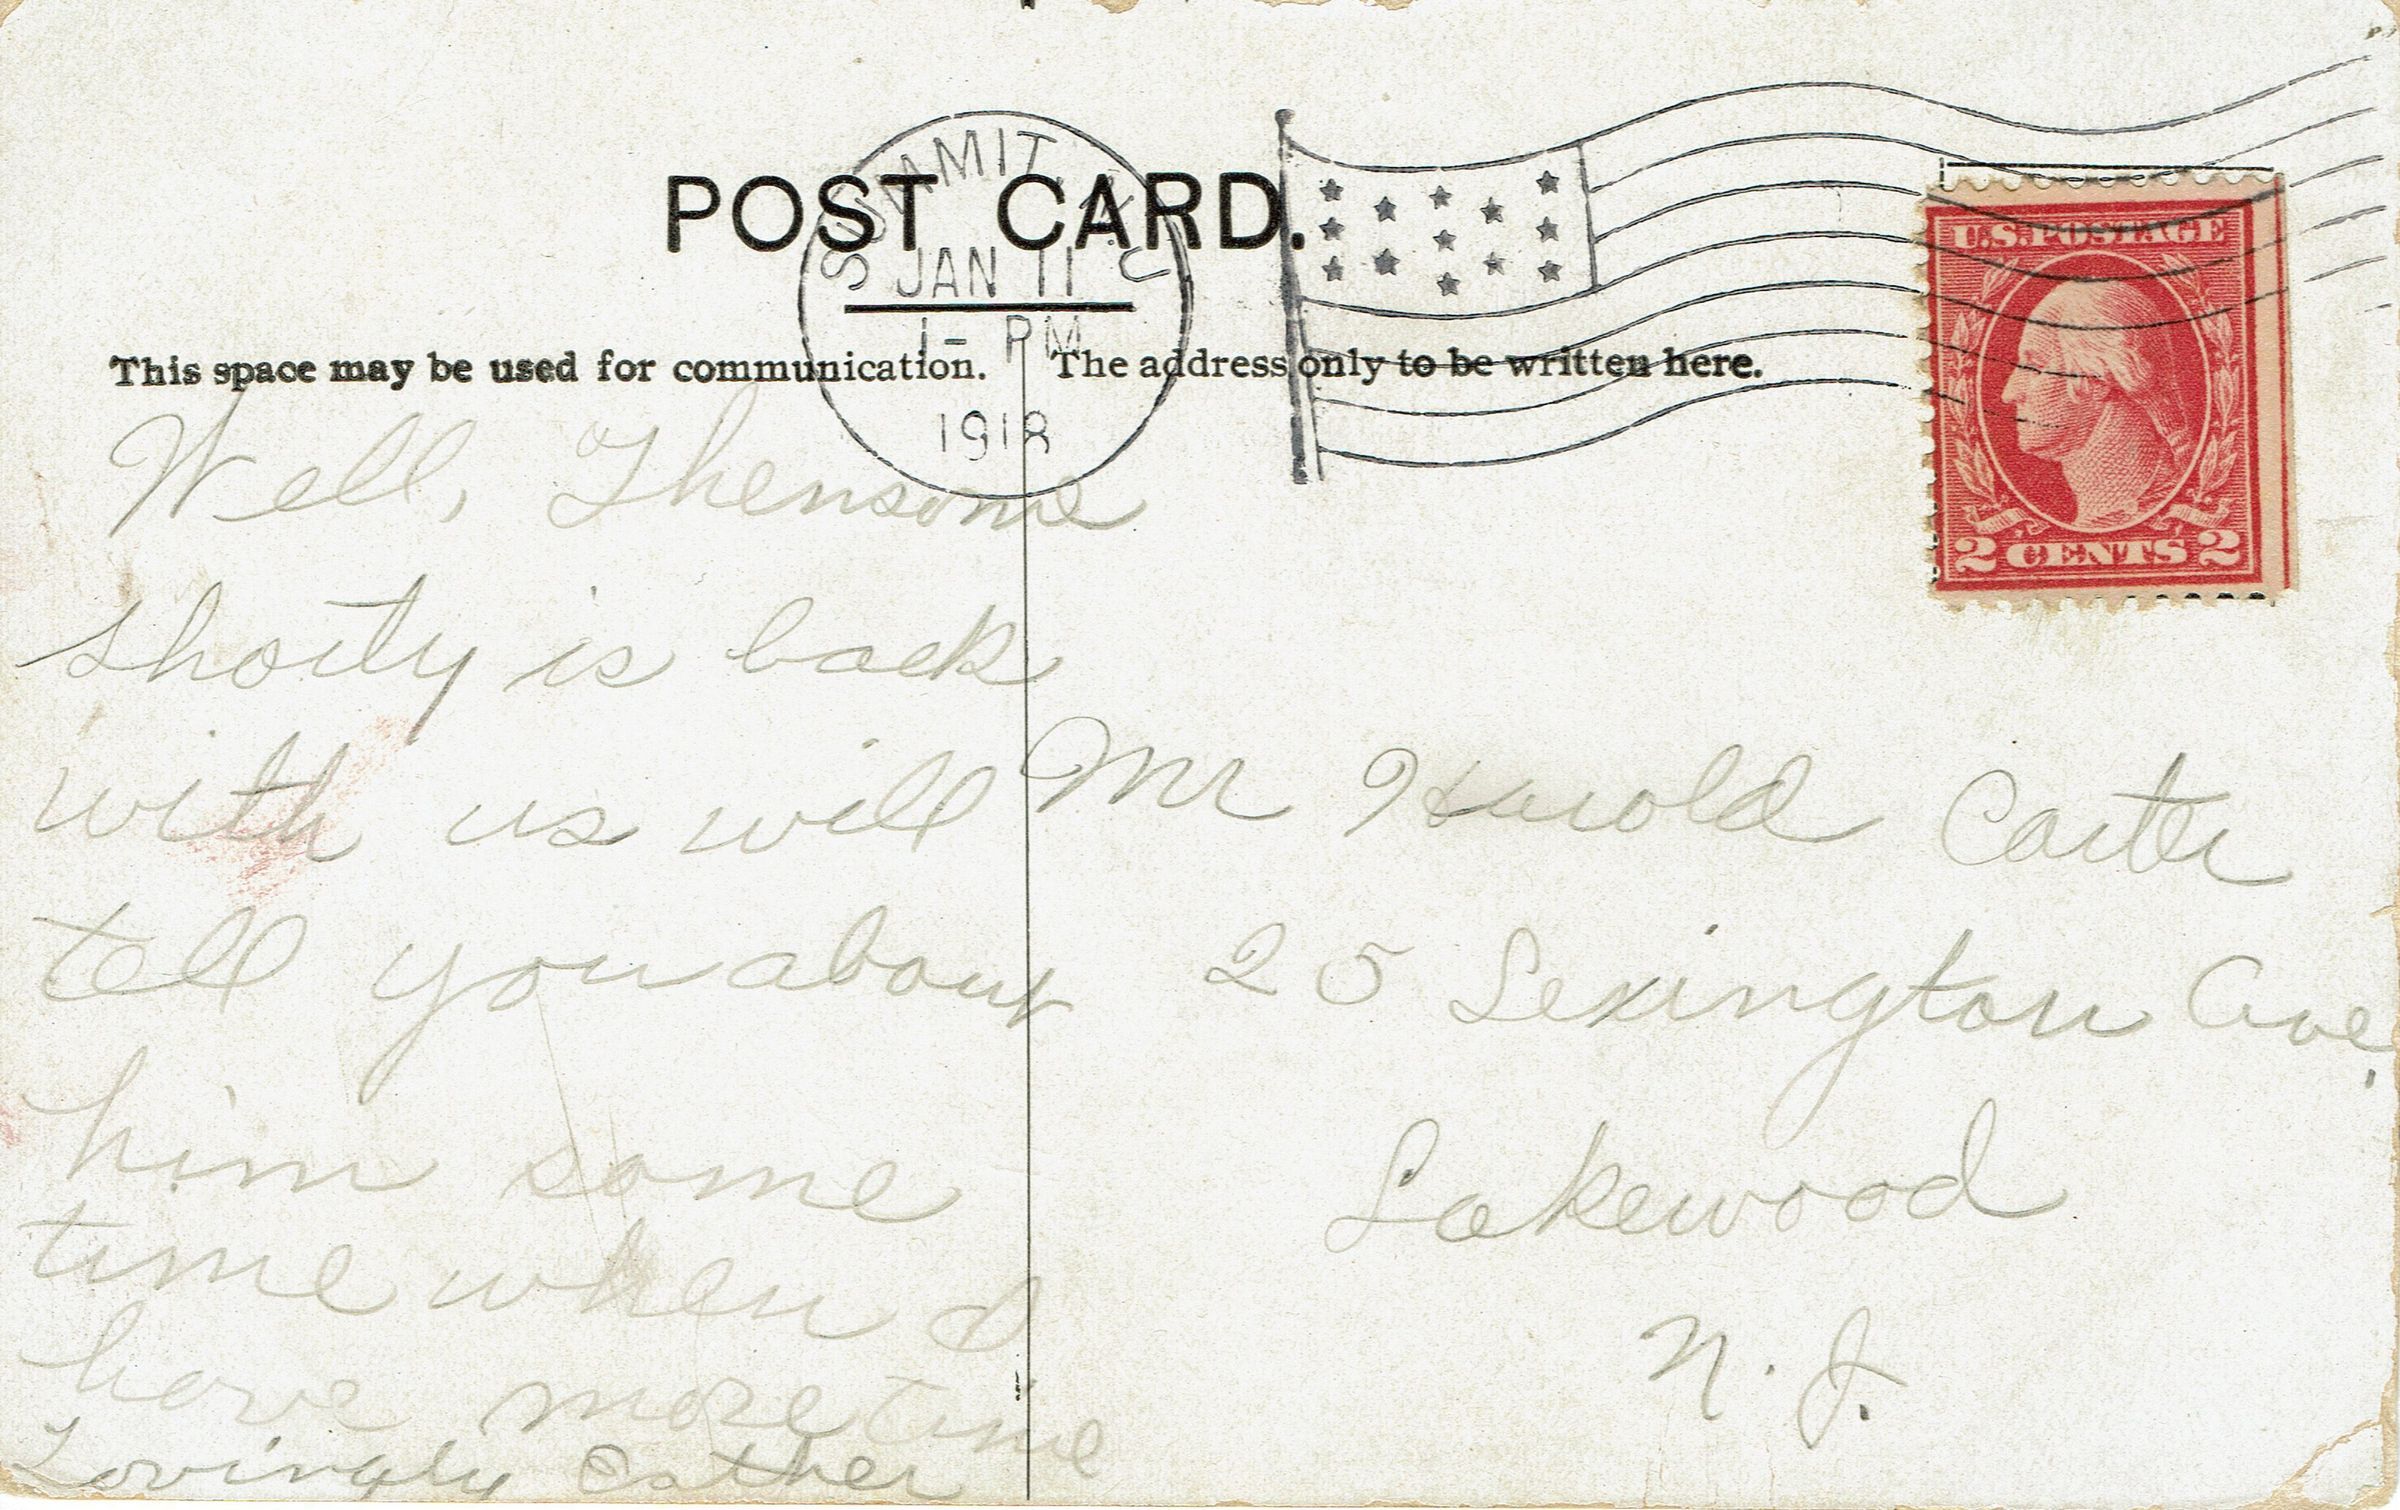 POST CARD.
SUMMIT, N.J.
JAN 11
1- PM
1918
U.S. POSTAGE
2 CENTS 2
This space may be used for communication.
The address only to be written here.
Well,
shorty is back
with us will
tell you about
him some
time when I
have more time
Lovingly Esther
Mr Harold Carter
25 Lexington Ave,
Lakewood
N. J.